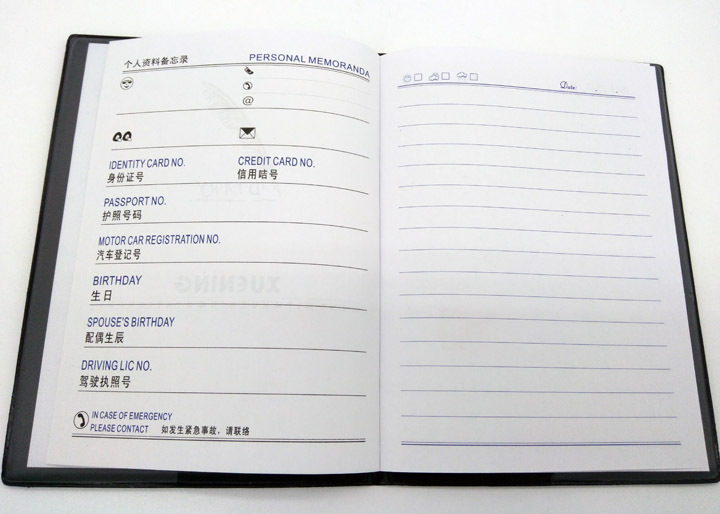 个人资料备忘录 PERSONAL MEMORANDA
@
IDENTITY CARD NO. CREDIT CARD NO.
身份证号 信用咭号
PASSPORT NO.
护照号码
MOTOR CAR REGISTRATION NO.
汽车登记号
BIRTHDAY
生日
SPOUSE'S BIRTHDAY
配偶生辰
DRIVING LIC NO.
驾驶执照号
IN CASE OF EMERGENCY
PLEASE CONTACT 如发生紧急事故，请联络
Date: . .
XUENING